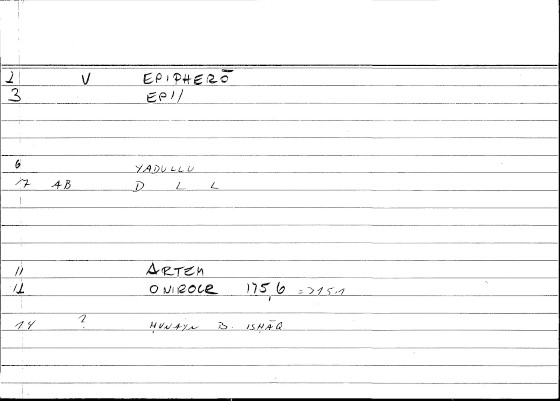 2 V EPIPHERŌ
3 EPI/
6 YADULLU
7 AB D L L
11 ARTEM
12 ONIROCR 175,6 =>151
14 ? ḤUNAYN B. ISḤĀQ